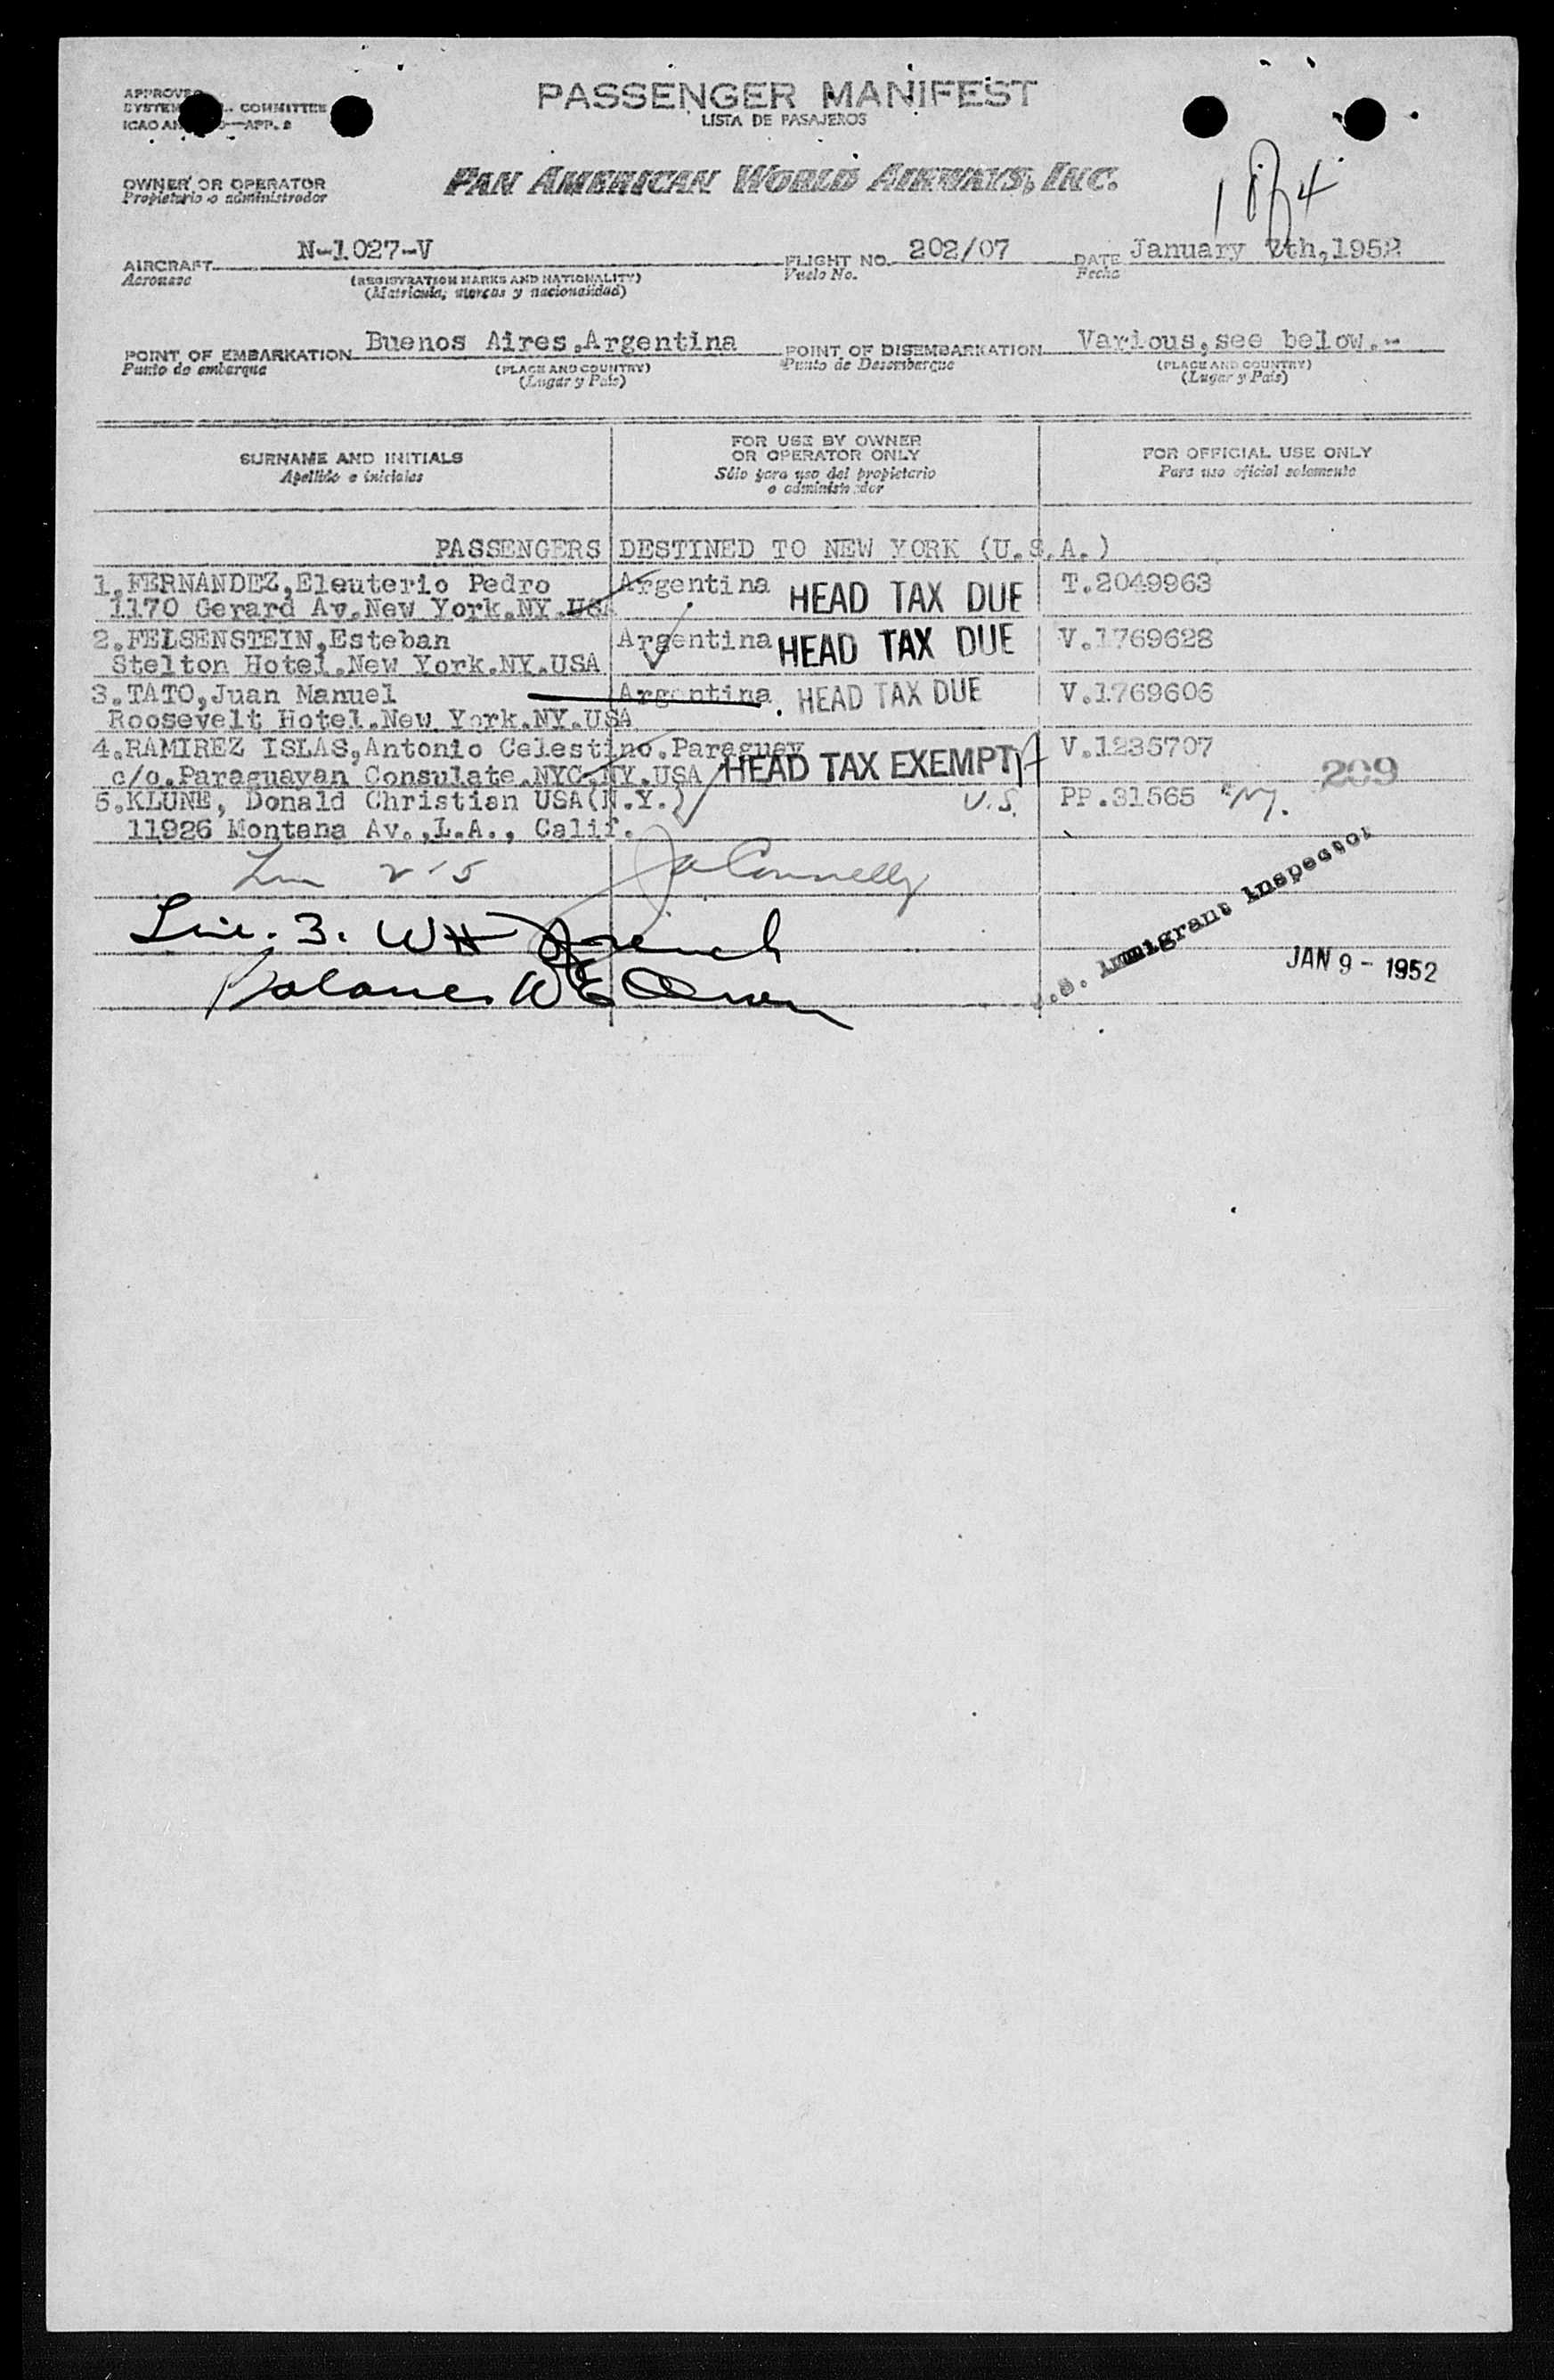 APPROVED
SYSTEM COMMITTEE
ICAO APP. 2
PASSENGER MANIFEST
LISTA DE PASAJEROS
PAN AMERICAN WORLD AIRWAYS, INC.
OWNER OR OPERATOR
Propietario o administrador
AIRCRAFT N-1027-V FLIGHT NO. 202/07 DATE January 7th,1952
Aeronave (REGISTRATION MARKS AND NATIONALITY) Vuelo No. Fecha
(Matricula, marcas y nacionalidad)
POINT OF EMBARKATION Buenos Aires,Argentina POINT OF DISEMBARKATION Various,see below.-
Punto de embarque (PLACE AND COUNTRY) Punto de Desembarque (PLACE AND COUNTRY)
(Lugar y País) (Lugar y País)
SURNAME AND INITIALS
Apellido e iniciales
FOR USE BY OWNER
OR OPERATOR ONLY
Sólo para uso del propietario
o administrador
FOR OFFICIAL USE ONLY
Para uso oficial solamente
PASSENGERS DESTINED TO NEW YORK (U.S.A.)
1.FERNANDEZ,Eleuterio Pedro Argentina HEAD TAX DUE T.2049963
1170 Gerard Av.New York.NY.USA
2.FELSENSTEIN,Esteban Argentina HEAD TAX DUE V.1769628
Stelton Hotel.New York.NY.USA
3.TATO,Juan Manuel Argentina HEAD TAX DUE V.1769606
Roosevelt Hotel.New York.NY.USA
4.RAMIREZ ISLAS,Antonio Celestino.Paraguay V.1235707
c/o.Paraguayan Consulate.NYC.NY.USA HEAD TAX EXEMPT 209
5.KLUNE, Donald Christian USA(N.Y.) U.S. PP.31565 NY.
11926 Montana Av.,L.A., Calif.
Connelly
Line. 3. WH French
Balance WE
U.S. Immigrant Inspector
JAN 9 - 1952